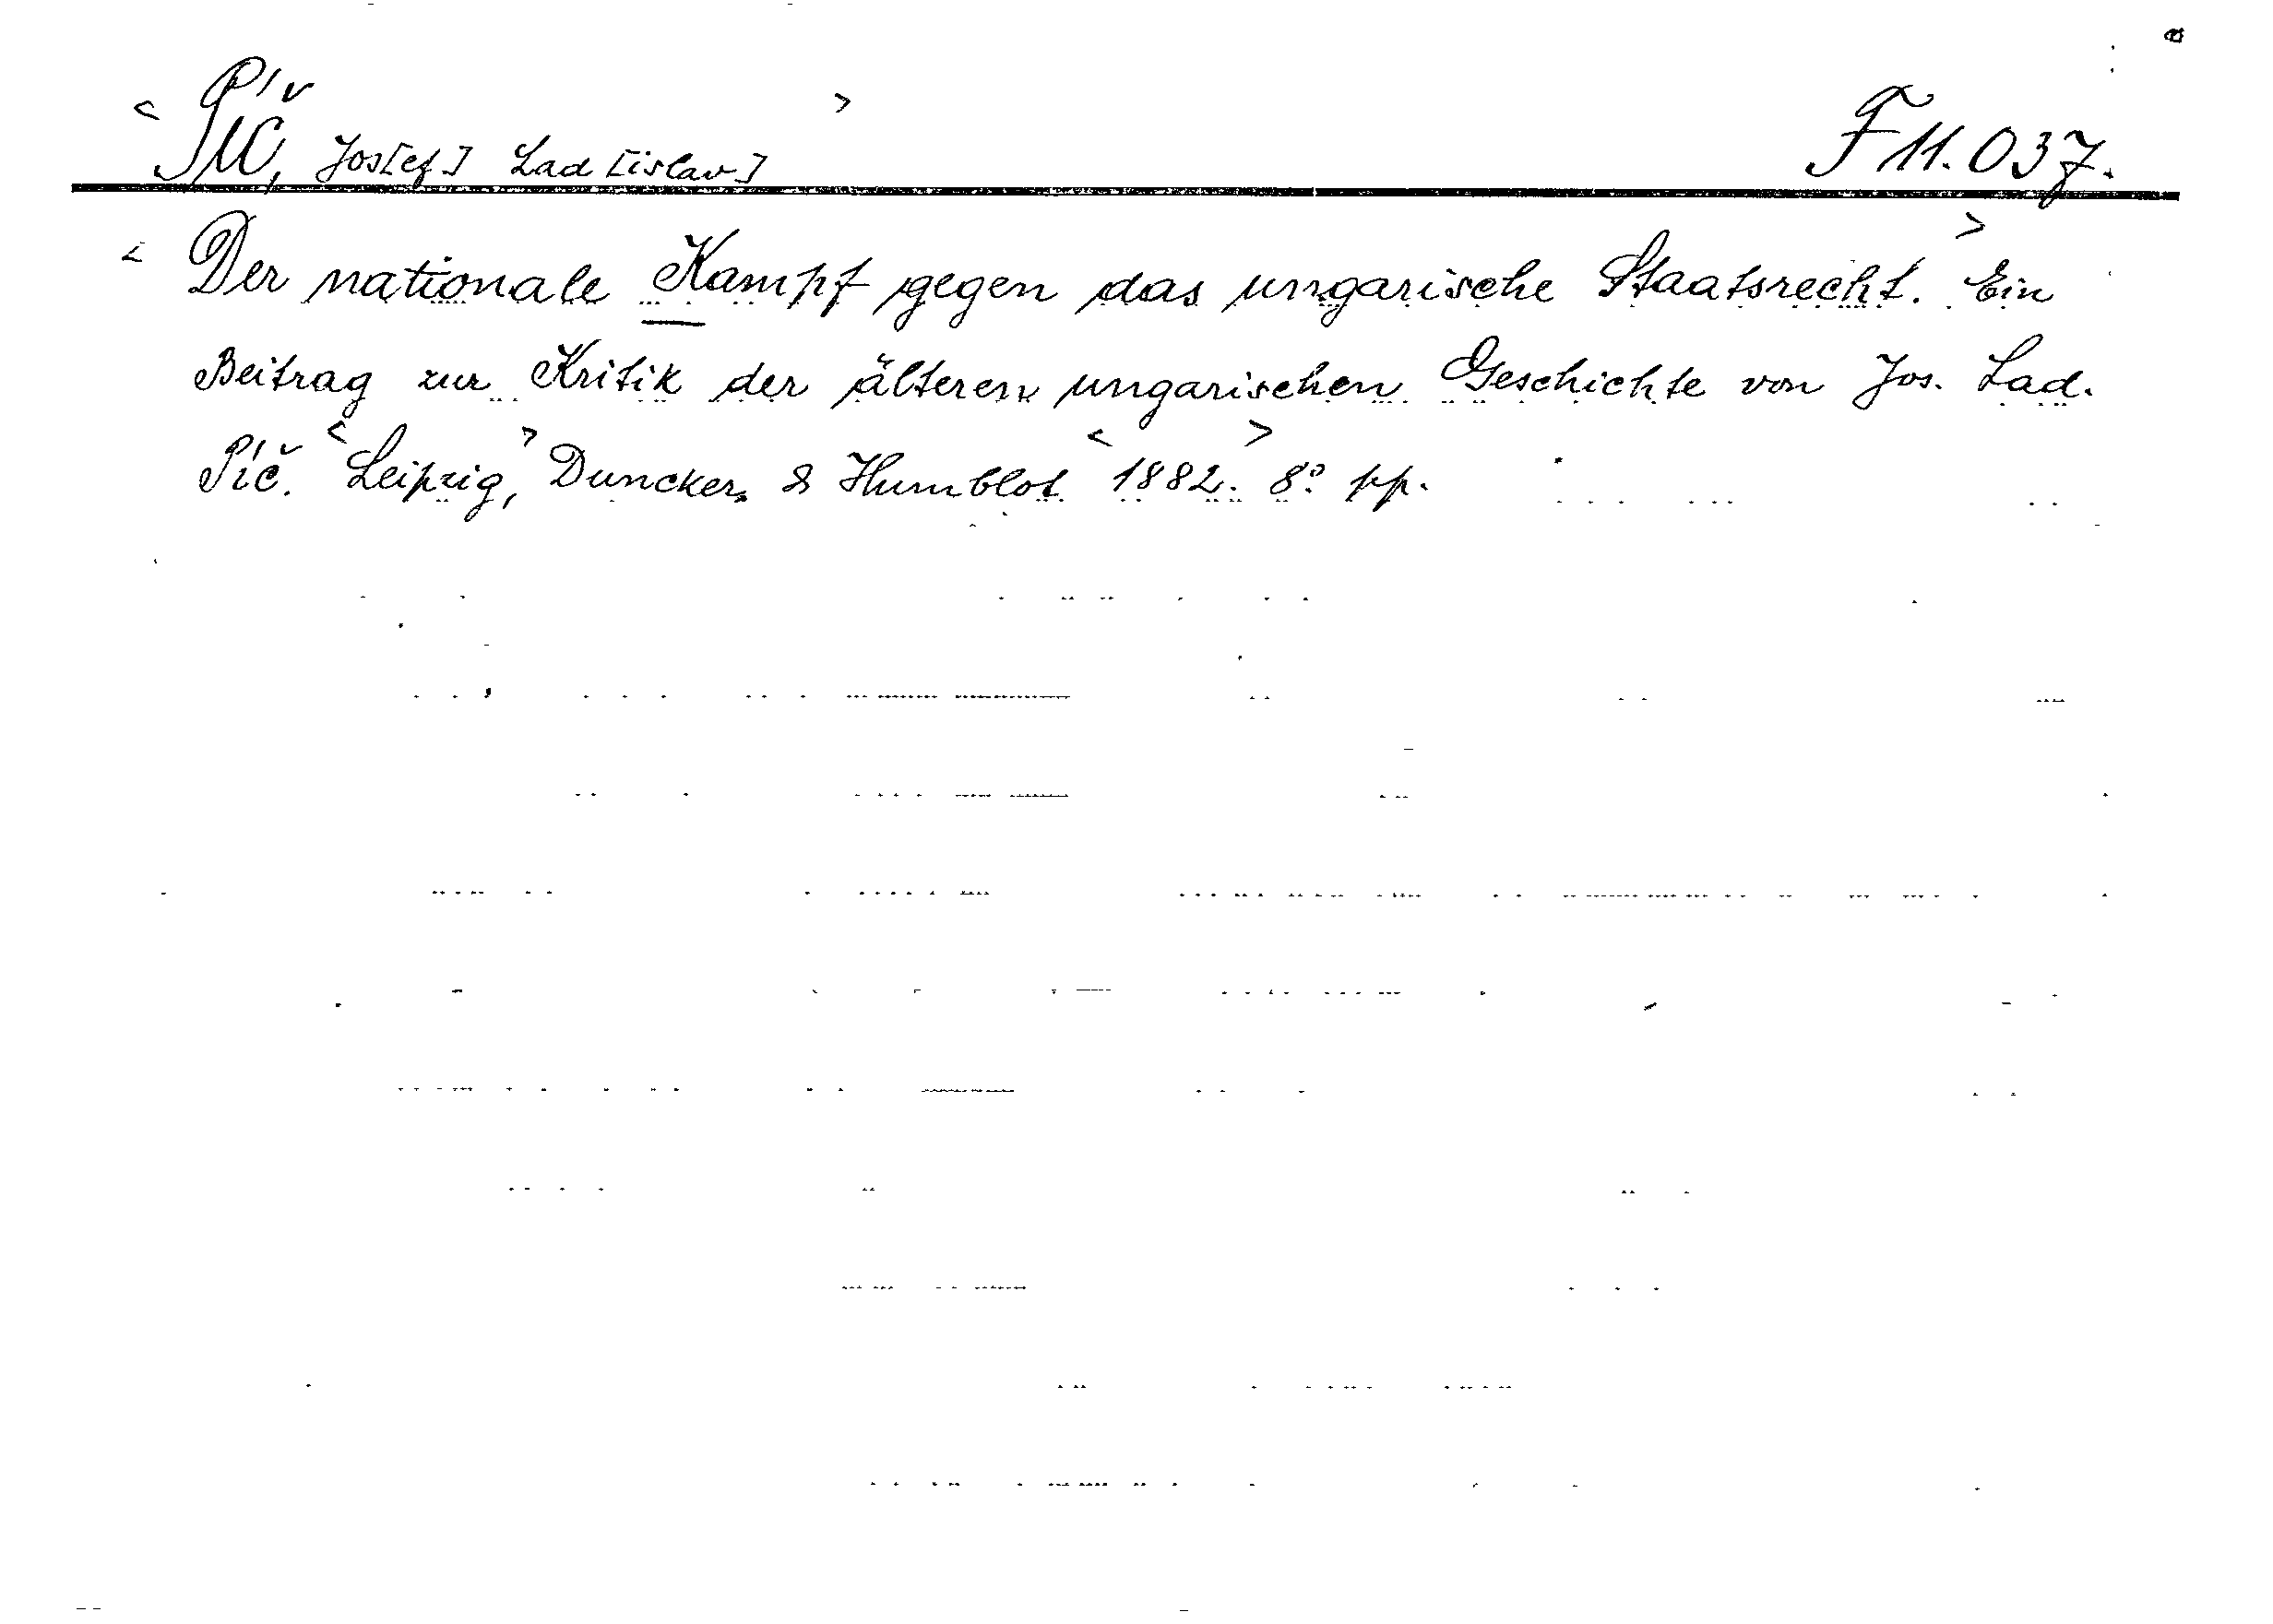 < Píč, Jos[ef] Lad[islav] > F 11.037.
< Der nationale Kampf gegen das ungarische Staatsrecht. > Ein
Beitrag zur Kritik der älteren ungarischen Geschichte von Jos. Lad.
Píč. < Leipzig, > Duncker & Humblot < 1882. > 8° pp.